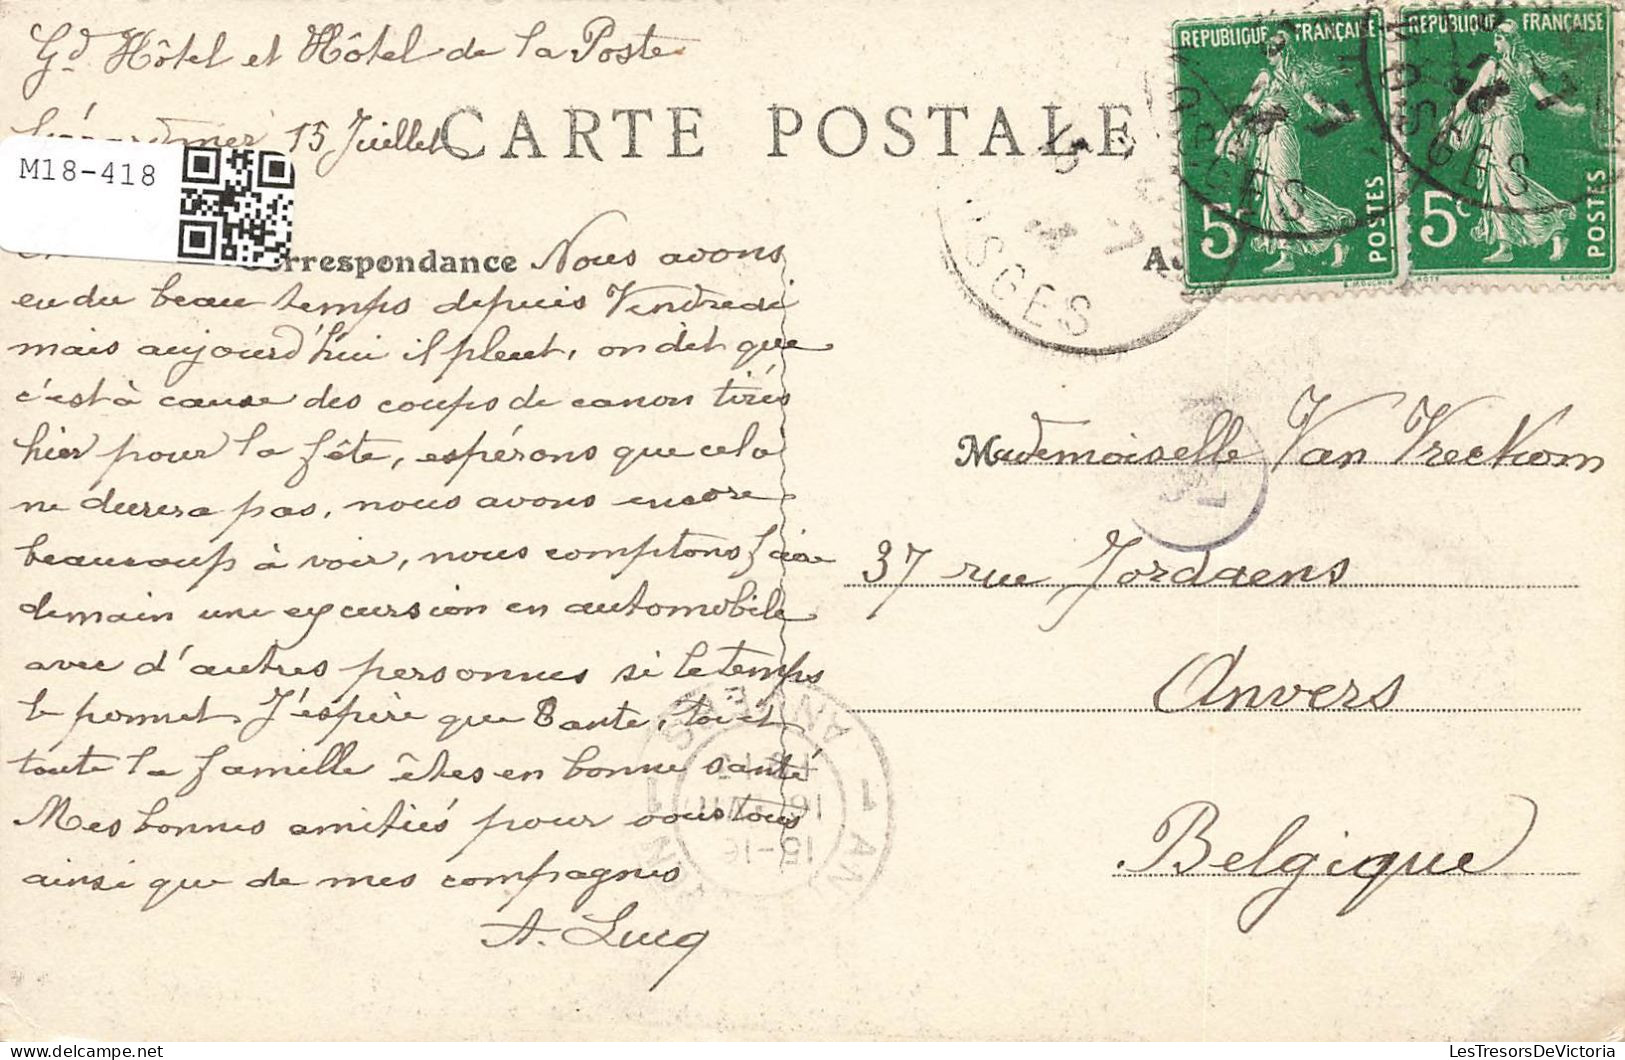 Gd Hôtel et Hôtel de la Poste
15 Juillet
CARTE POSTALE
M18-418
REPUBLIQUE FRANÇAISE
5c
POSTES
REPUBLIQUE FRANÇAISE
5c
POSTES
OSGES
VOSGES
Correspondance
Nous avons
eu du beau temps depuis Vendredi
mais aujourd'hui il pleut, on dit que
c'est à cause des coups de canon tirés
hier pour la fête, espérons que cela
ne durera pas, nous avons encore
beaucoup à voir, nous comptons faire
demain une excursion en automobile
avec d'autres personnes si le temps
le permet. J'espère que Tante, toi et
toute la famille êtes en bonne santé
Mes bonnes amitiés pour vous tous
ainsi que de mes compagnes
A. Lucq
Mademoiselle Van Vreckom
37 rue Jordaens
Anvers
Belgique
ANVERS
LesTresorsDeVictoria